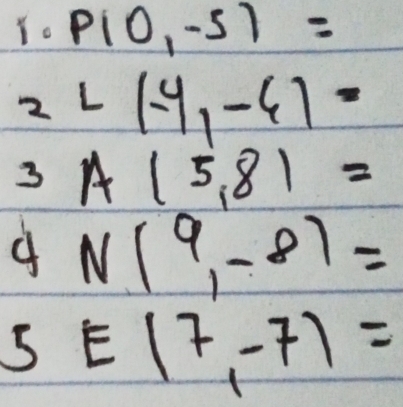 1. P(0,-5) =
2 L (-4,-6) =
3 A (5,8) =
4 N (9,-8) =
5 E (7,-7) =